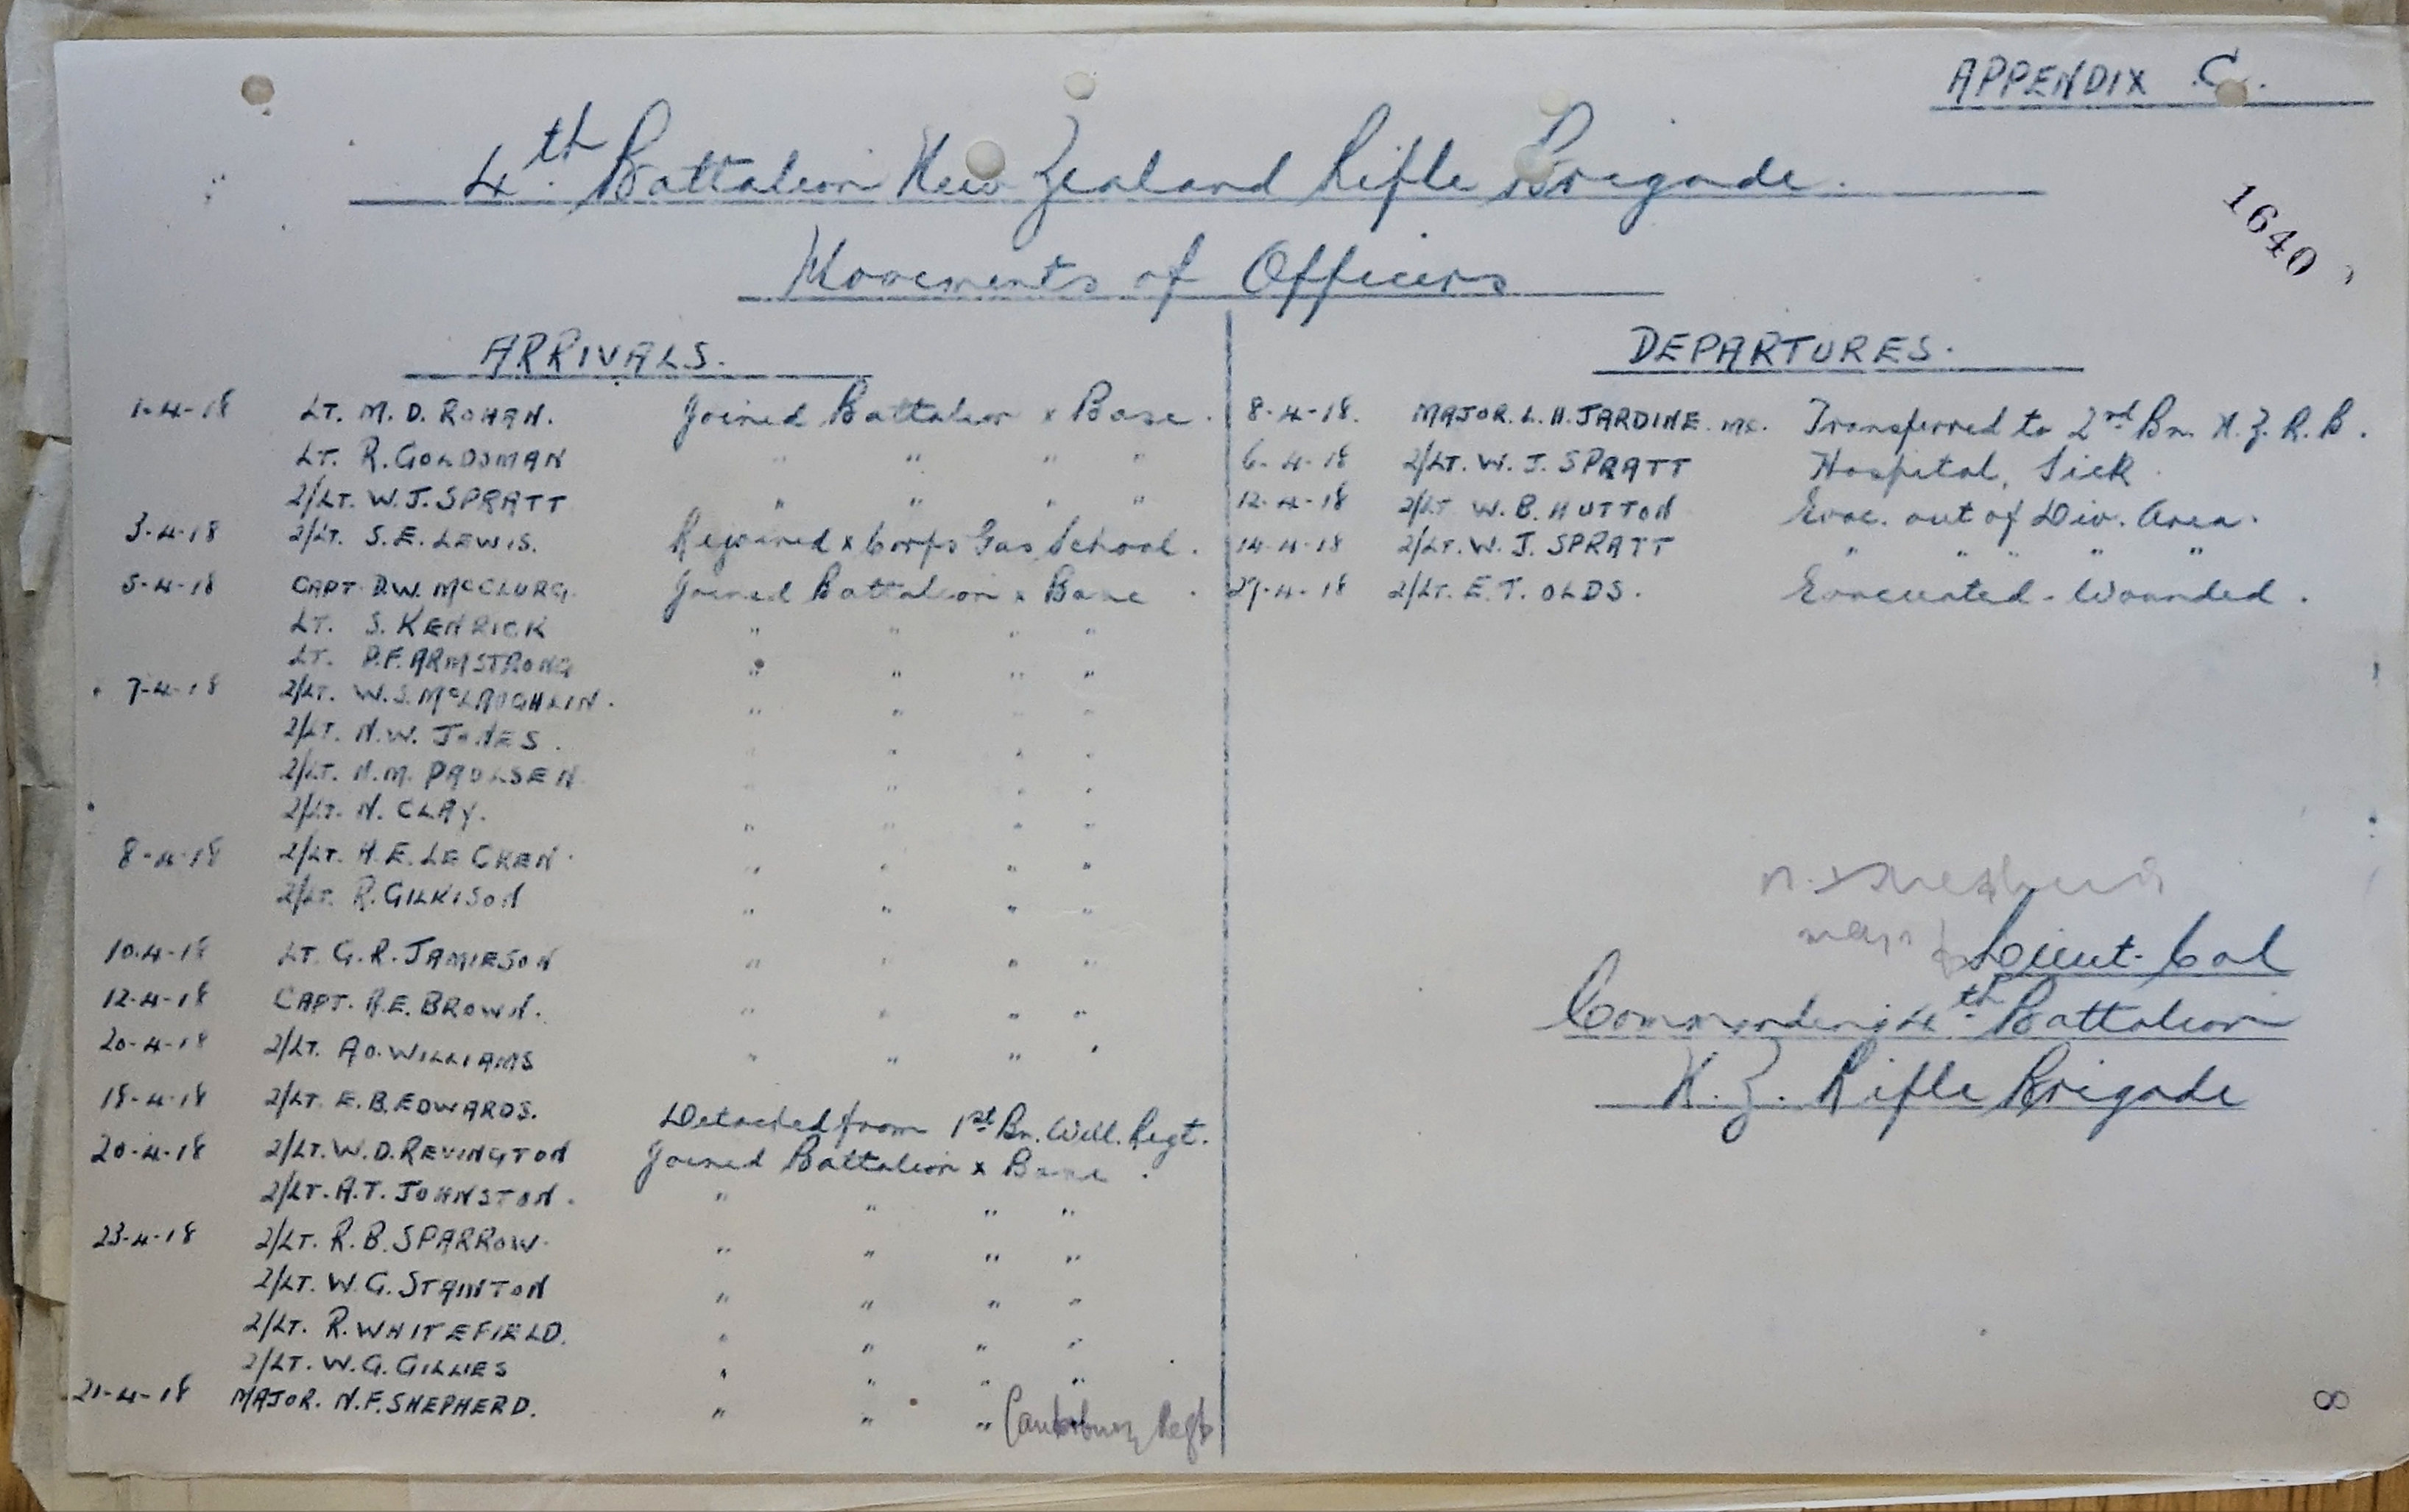 APPENDIX C.
4th. Battalion New Zealand Rifle Brigade.
1640
Movements of Officers
ARRIVALS.
1-4-18 LT. M. D. ROHAN. Joined Battalion x Base.
LT. R. GOLDSMAN " " " "
2/LT. W. J. SPRATT " " " "
3-4-18 2/LT. S. E. LEWIS. Rejoined x Corps Gas School.
5-4-18 CAPT. D.W. McCLURG. Joined Battalion x Base.
LT. S. KENRICK " " " "
LT. P.F. ARMSTRONG " " " "
7-4-18 2/LT. W.S. McLAUGHLIN. " " " "
2/LT. N.W. JONES. " " "
2/LT. H.M. PAULSEN " " "
2/LT. N. CLAY. " " " "
8-4-18 2/LT. H. E. LE CREN. " " " "
2/LT. R. GILKISON " " " "
10-4-18 LT. G. R. JAMIESON " " " "
12-4-18 CAPT. A.E. BROWN. " " " "
20-4-18 2/LT. A.O. WILLIAMS " " " "
18-4-18 2/LT. E. B. EDWARDS. Detached from 1st Bn. Well. Regt.
20-4-18 2/LT. W. D. REVINGTON Joined Battalion x Base.
2/LT. A.T. JOHNSTON. " " " "
23-4-18 2/LT. R. B. SPARROW. " " " "
2/LT. W. G. STAINTON " " " "
2/LT. R. WHITEFIELD. " " " "
2/LT. W. G. GILLIES " " " "
21-4-18 MAJOR. N.F. SHEPHERD. " " " Canterbury Regt
DEPARTURES.
8-4-18. MAJOR. L. H. JARDINE. MC. Transferred to 2nd Bn. N. Z. R. B.
6-4-18 2/LT. W. J. SPRATT Hospital, Sick.
12-4-18 2/LT W. B. HUTTON Evac. out of Div. Area.
14-4-18 2/LT. W. J. SPRATT " " " " "
29-4-18 2/LT. E. T. OLDS. Evacuated - Wounded.
Major
Lieut-Col
Commanding 4th. Battalion
N. Z. Rifle Brigade
8